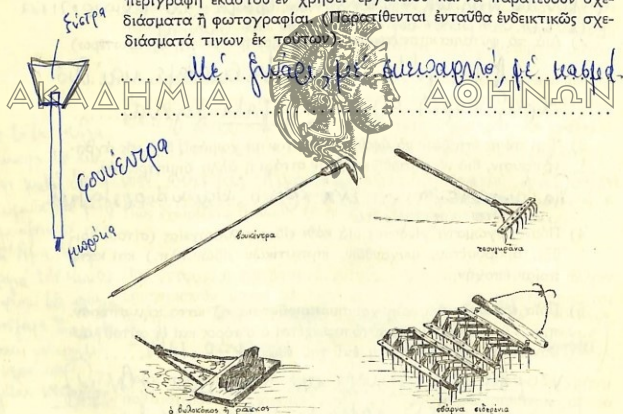 περιγραφὴ ἑκάστου ἐν χρήσει ἐργαλείου καὶ νὰ παρατεθοῦν σχε-
διάσματα ἢ φωτογραφίαι. (Παρατίθενται ἐνταῦθα ἐνδεικτικῶς σχε-
διάσματά τινων ἐκ τούτων)
ξύστρα
Μὲ ξινάρι, μὲ σκεπάρνι, μὲ κασμά.
ΑΚΑΔΗΜΙΑ ΑΘΗΝΩΝ
βουκέντρα
βουκέντρα
τσουγκράνα
ὁ βωλοκόπος ἢ ράκκος
σβάρνα σιδερένια